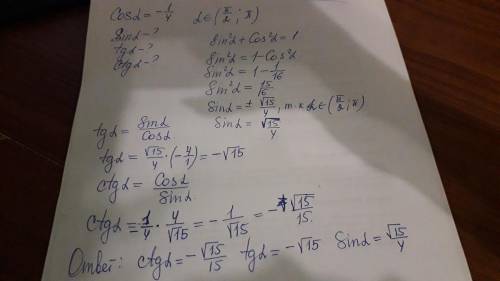 Cosα = -1/4   α ∈ (π/2 ; π)
Sinα - ?
tgα - ?   Sin²α + Cos²α = 1
Ctgα - ?   Sin²α = 1 - Cos²α
Sin²α = 1 - 1/16
Sin²α = 15/16
Sinα = ± √15/4, т.к α ∈ (π/2 ; π)
Sinα = √15/4
tgα = Sinα/Cosα
tgα = √15/4 · (-4/1) = -√15
Ctgα = Cosα/Sinα
Ctgα = -1/4 · 4/√15 = -1/√15 = -√15/15
Ответ: Ctgα = -√15/15   tgα = -√15   Sinα = √15/4